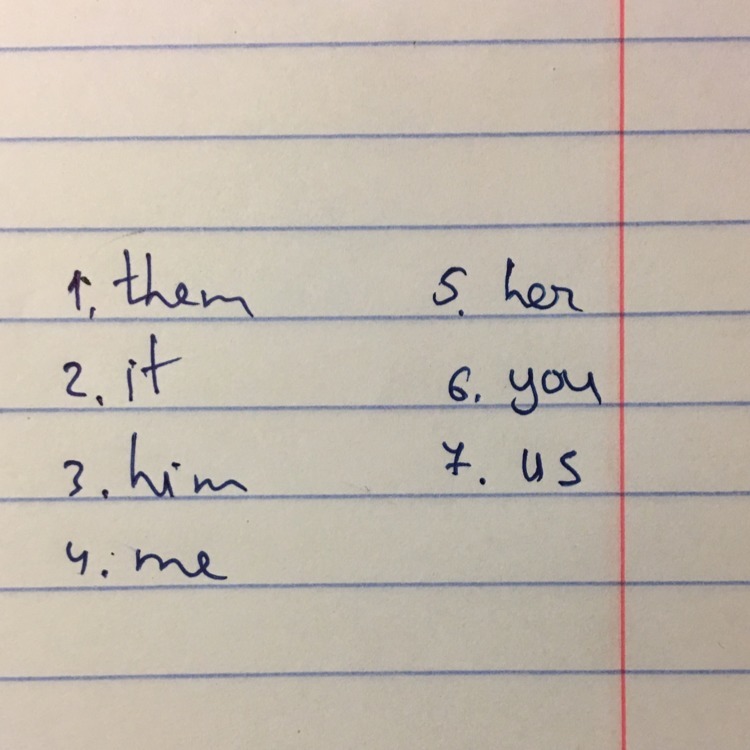 1. them
2. it
3. him
4. me
5. her
6. you
7. us